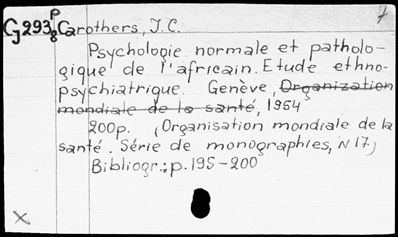 GJ293 p8 Carothers, J.C.
Psychologie normale et patholo-
gique de l'africain. Etude ethno-
psychiatrique. Genève, Organization
mondiale de la santé, 1954
200p. (Organisation mondiale de la
santé. Série de monographies, N 17)
Bibliogr.: p. 195-200